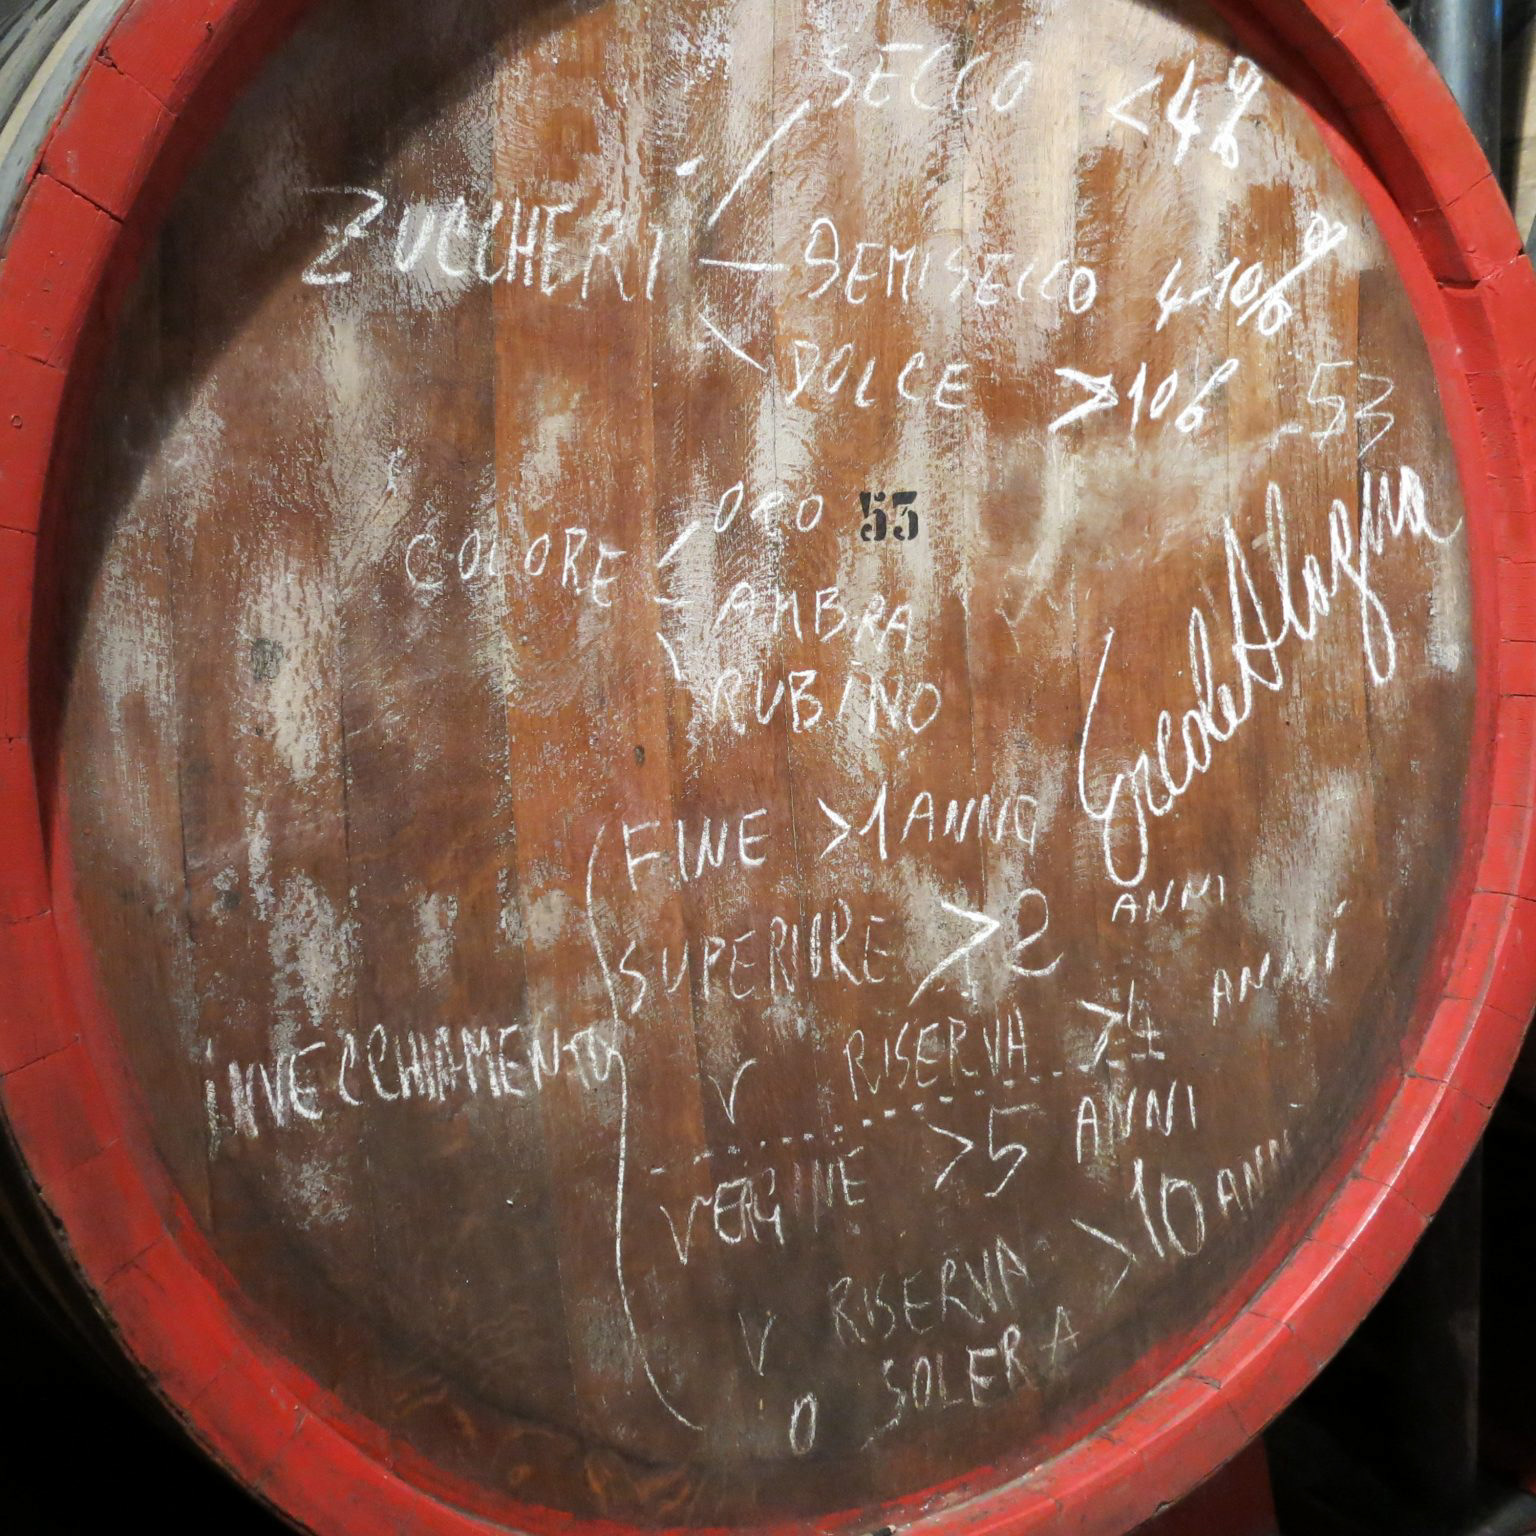 SECCO <4%
ZUCCHERI
SEMISECCO 4-10%
DOLCE >10%
53
COLORE
ORO
53
AMBRA
RUBINO
Ercole Alagna
FINE >1 ANNO
SUPERIORE >2 ANNI
INVECCHIAMENTO
V RISERVA >4 ANNI
VERGINE >5 ANNI
V RISERVA >10 ANNI
O SOLERA